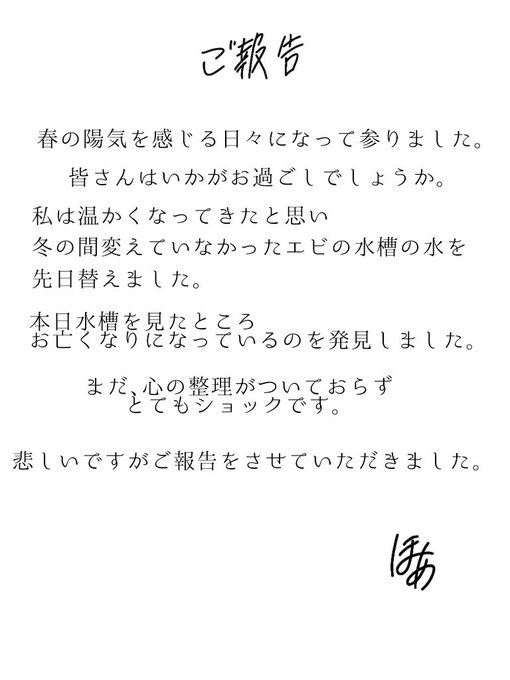 ご報告
春の陽気を感じる日々になって参りました。
皆さんはいかがお過ごしでしょうか。
私は温かくなってきたと思い
冬の間変えていなかったエビの水槽の水を
先日替えました。
本日水槽を見たところ
お亡くなりになっているのを発見しました。
まだ、心の整理がついておらず
とてもショックです。
悲しいですがご報告をさせていただきました。
ほあ